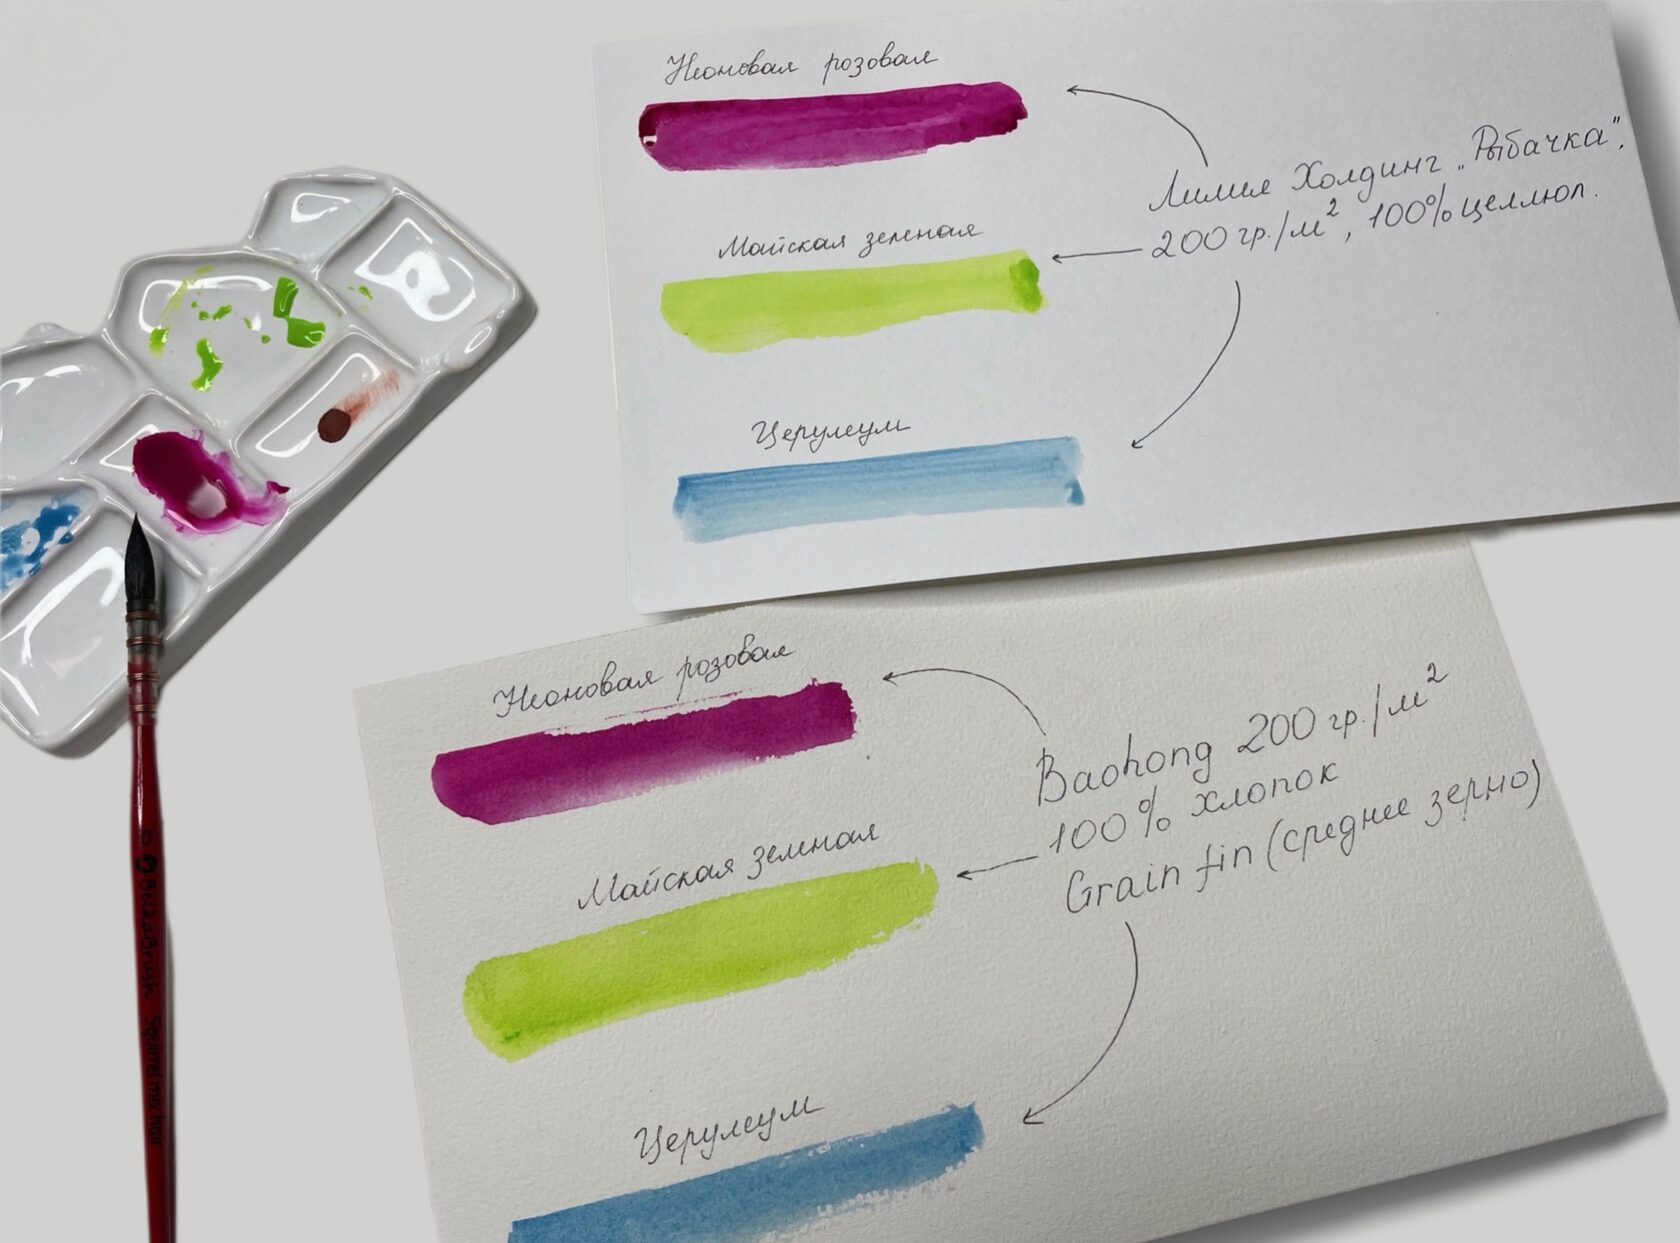 Неоновая розовая
Майская зеленая
Церулеум
Лилия Холдинг „Рыбачка“,
200 гр./м², 100% целлюл.
Неоновая розовая
Майская зеленая
Церулеум
Baohong 200 гр./м²
100% хлопок
Grain fin (среднее зерно)
BelkaBrush Squirrel mix hair